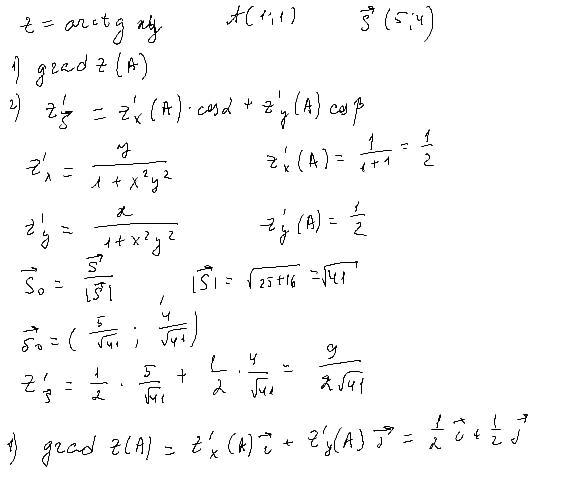 z = arctg xy A(1;1) S⃗ (5;4)
1) grad z (A)
2) z'_S⃗ = z'_x (A) · cosα + z'_y (A) cosβ
z'_x = y / (1 + x²y²) z'_x (A) = 1 / (1+1) = 1/2
z'_y = x / (1 + x²y²) z'_y (A) = 1/2
S⃗₀ = S⃗ / |S⃗| |S⃗| = √(25+16) = √41
S⃗₀ = ( 5/√41 ; 4/√41 )
z'_S⃗ = 1/2 · 5/√41 + 1/2 · 4/√41 = 9 / 2√41
1) grad z(A) = z'_x (A) i⃗ + z'_y (A) j⃗ = 1/2 i⃗ + 1/2 j⃗